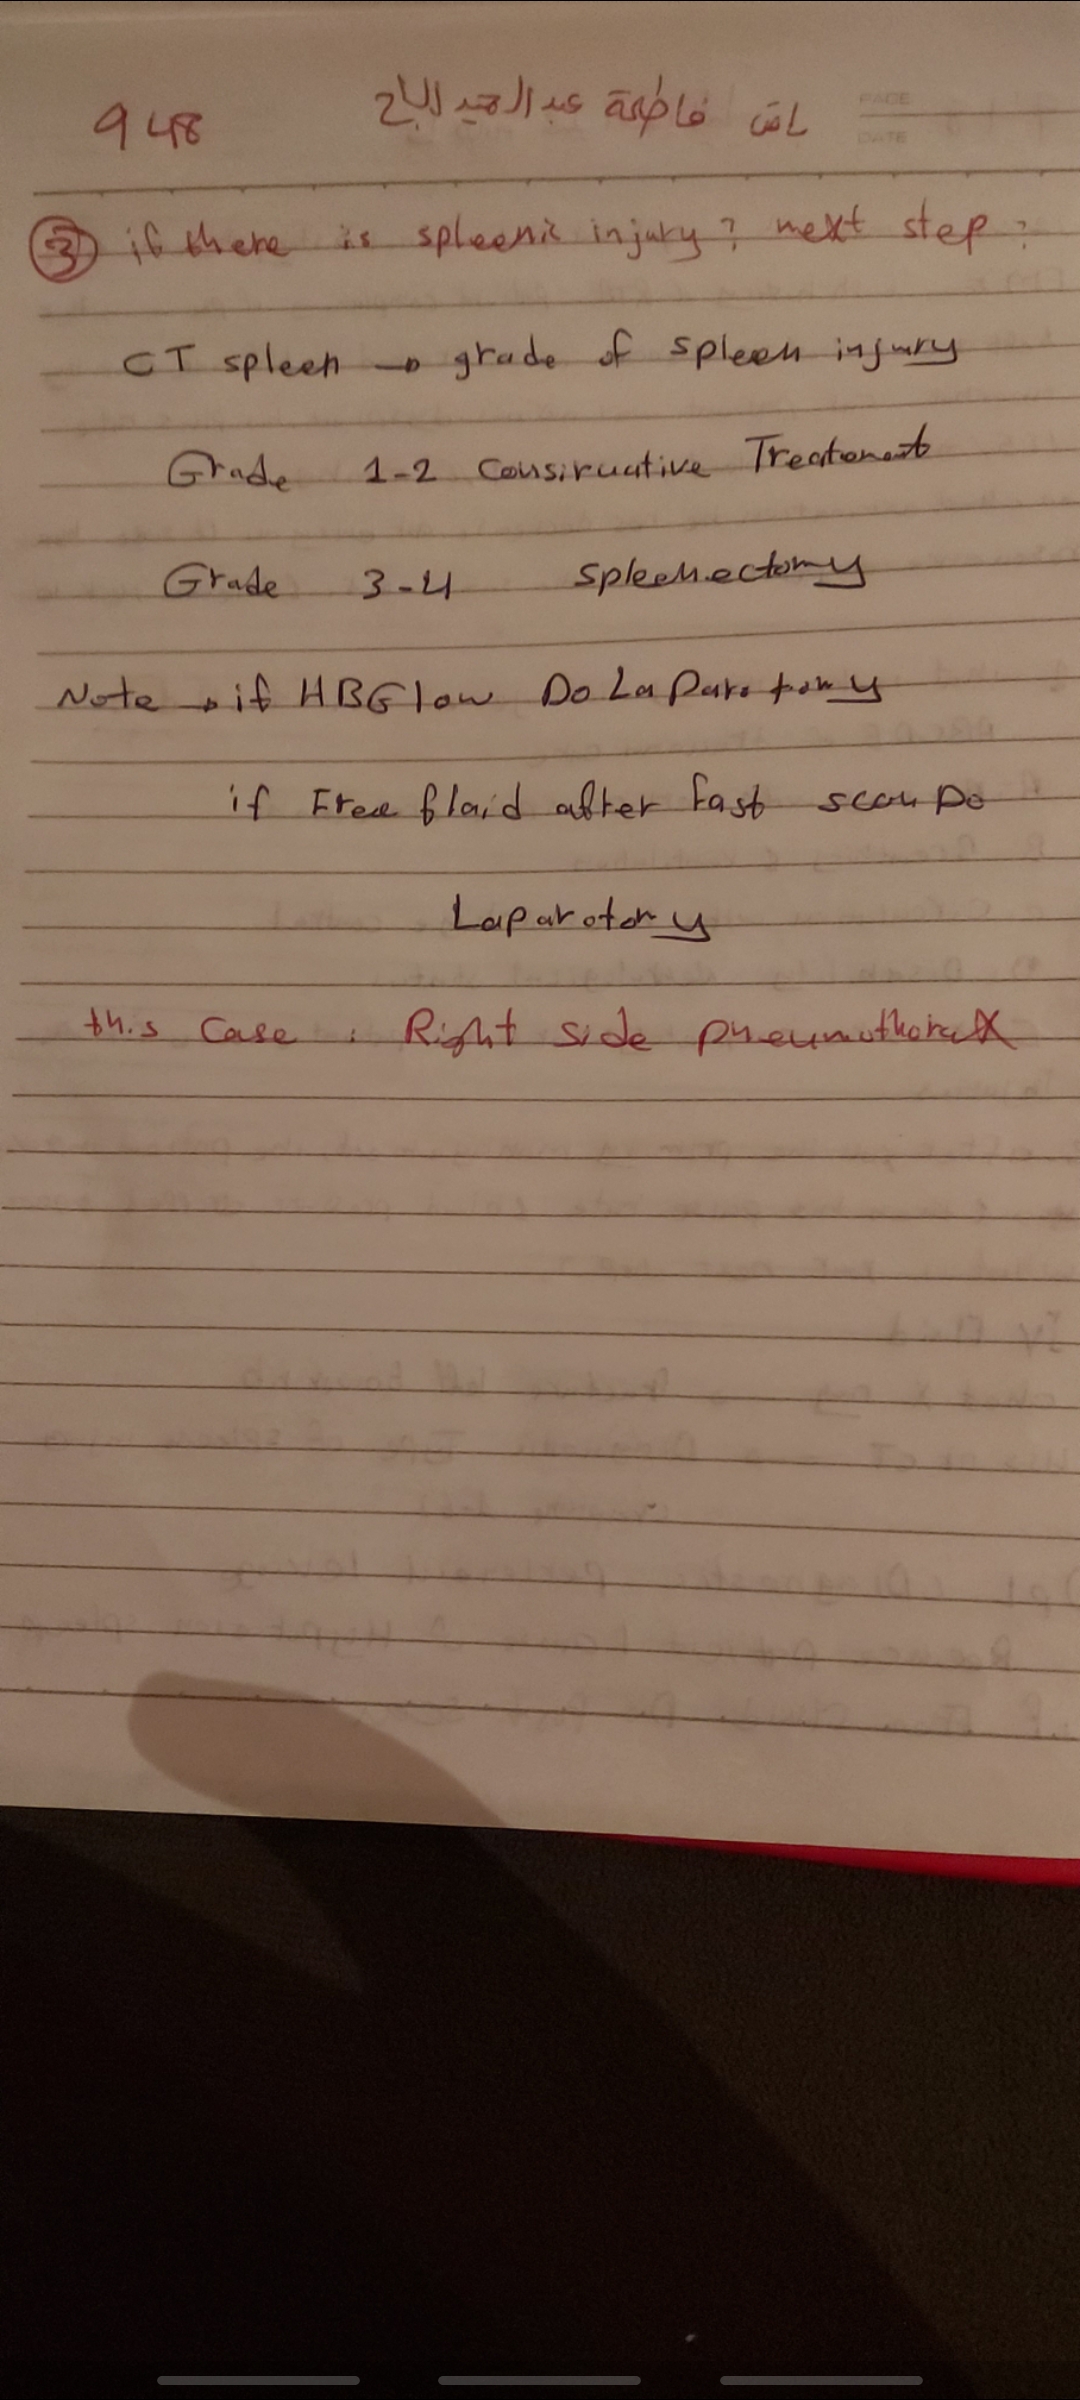 948 فاطمة عبد الحميد
PAGE
DATE
③ if there is spleenic injury? next step?
CT spleen → grade of spleen injury
Grade 1-2 Consirvative Treatment
Grade 3-4 spleenectomy
Note → if HBG low Do Laparotomy
if Free fluid after fast scan Do
Laparotomy
this case : Right side pneumothorax